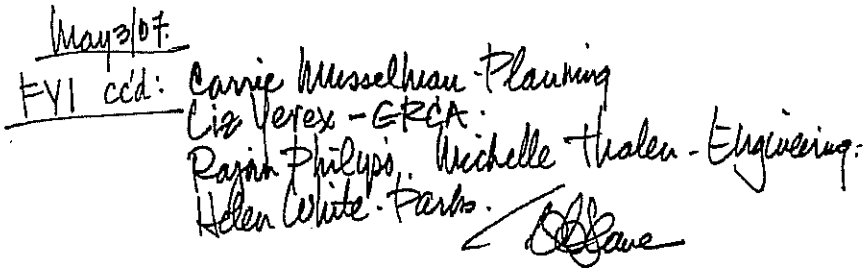 May 3/07.
FYI cc'd: Carrie Musselman - Planning
Liz Yerex - GRCA.
Rajan Philips, Michelle Thalen - Engineering.
Helen White - Parks.